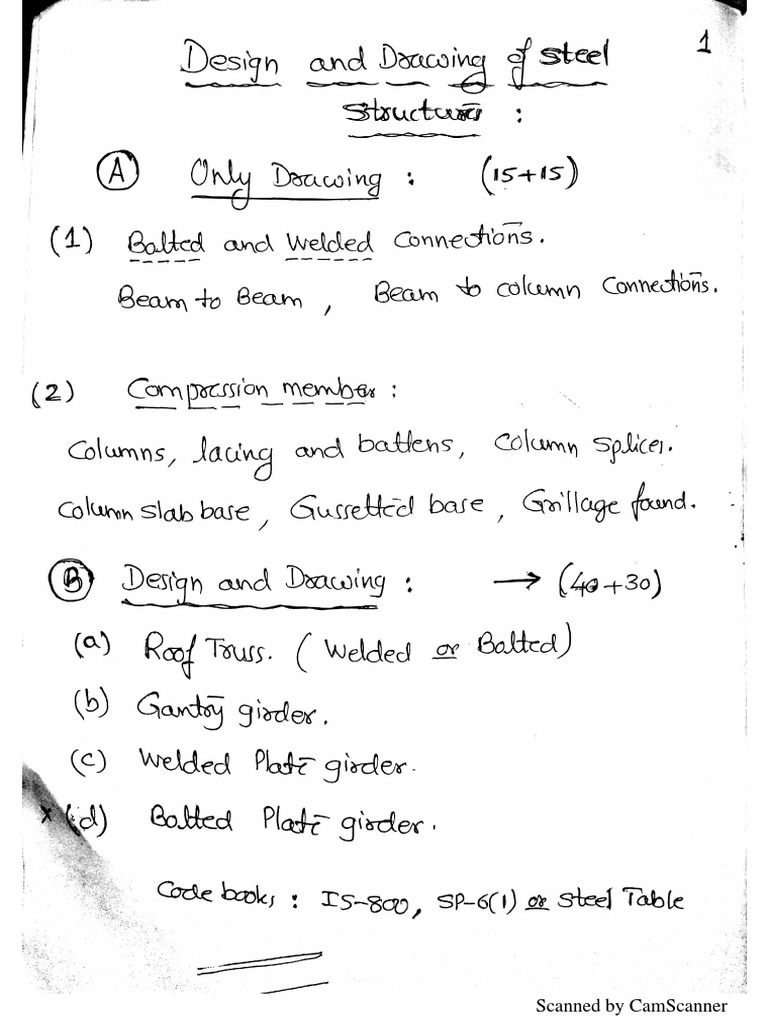 1
Design and Drawing of steel
structures :
(A) Only Drawing : (15+15)
(1) Bolted and Welded Connections.
Beam to Beam, Beam to column Connections.
(2) Compression member :
Columns, lacing and battens, column splices.
column slab base, Gussetted base, Grillage found.
(B) Design and Drawing : → (40+30)
(a) Roof Truss. (Welded or Bolted)
(b) Gantry girder.
(c) Welded Plate girder.
x (d) Bolted Plate girder.
Code books : IS-800, SP-6(1) or Steel Table
Scanned by CamScanner